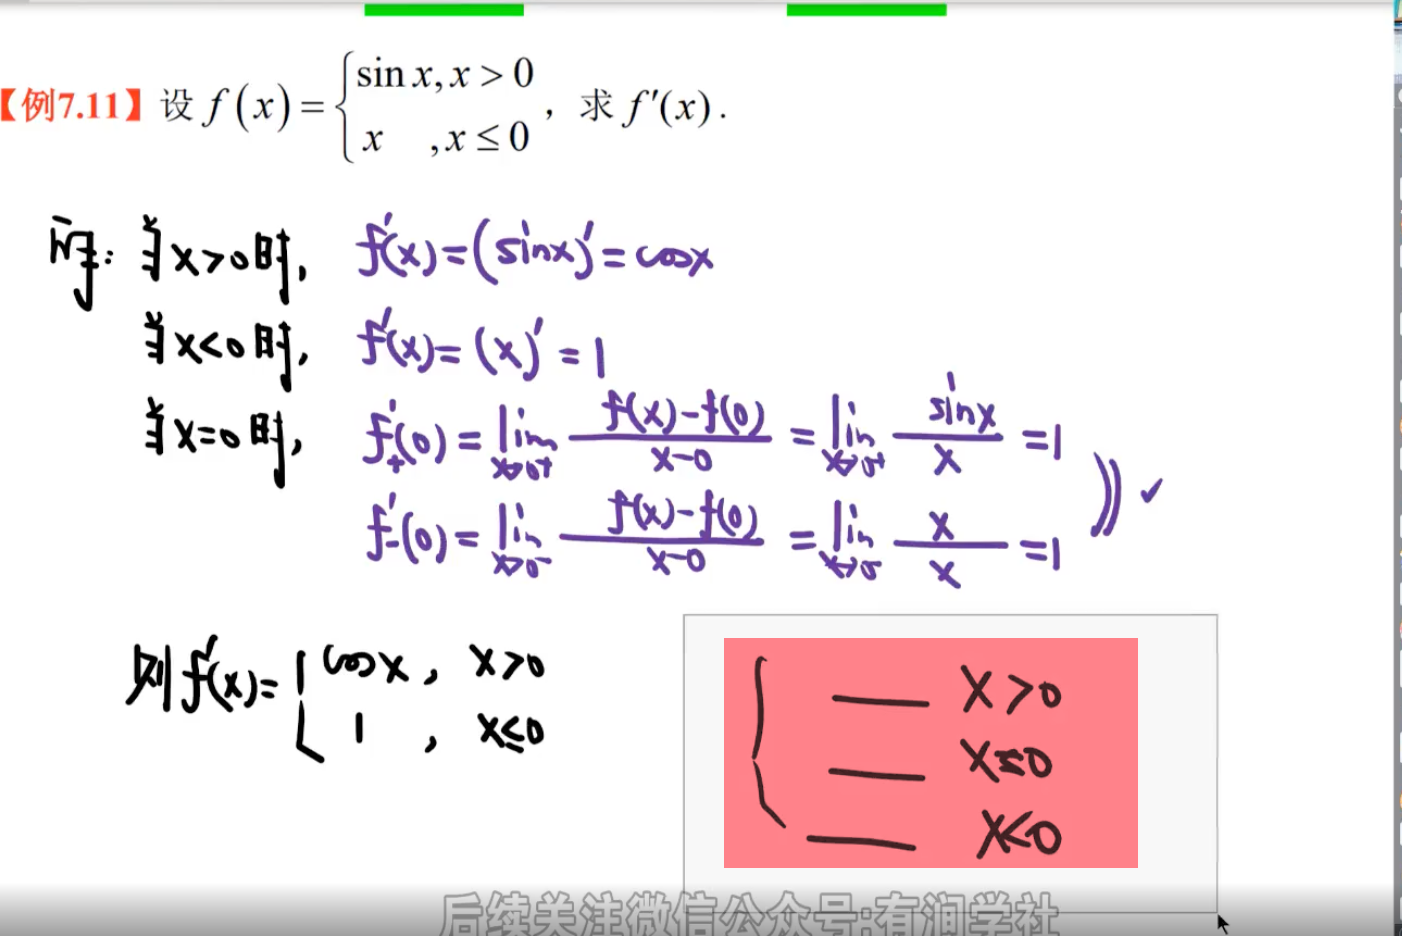 【例7.11】设 f(x) = { sin x, x > 0
x , x ≤ 0 , 求 f′(x).
解: 当x>0时, f′(x)=(sinx)′=cosx
当x<0时, f′(x)=(x)′=1
当x=0时, f′₊(0)=lim x→0⁺ f(x)-f(0) / x-0 = lim x→0⁺ sinx / x =1
f′₋(0)=lim x→0⁻ f(x)-f(0) / x-0 = lim x→0⁻ x / x =1
则 f′(x)= { cosx, x>0
1, x≤0
{ __ x>0
__ x=0
__ x<0
后续关注微信公众号:有润学社